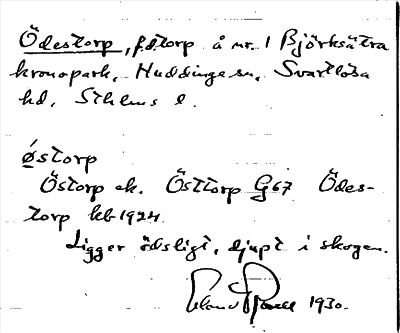 Ödestorp, f.d. torp å nr. 1 Björksätra
kronopark, Huddinge sn, Svartlösa
hd, Sthlms l.
östorp
Östorp ek. Östtorp G67 Ödes-
torp kb 1924.
Ligger ödsligt, djupt i skogen.
1930.